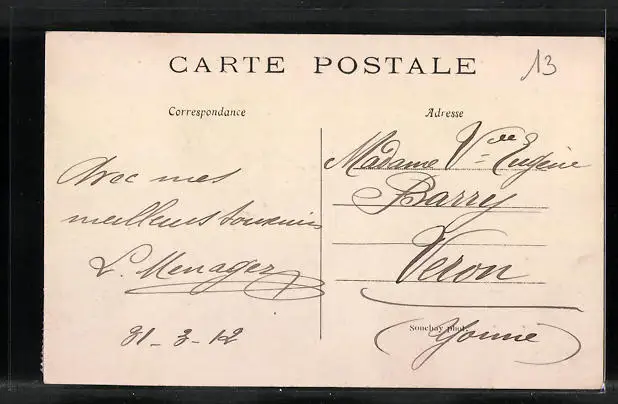 CARTE POSTALE
13
Correspondance
Avec mes
meilleurs souvenirs
L. Menager
31-3-12
Adresse
Madame Vve Eugène
Barry
Veron
Souchay phot.
(Yonne)